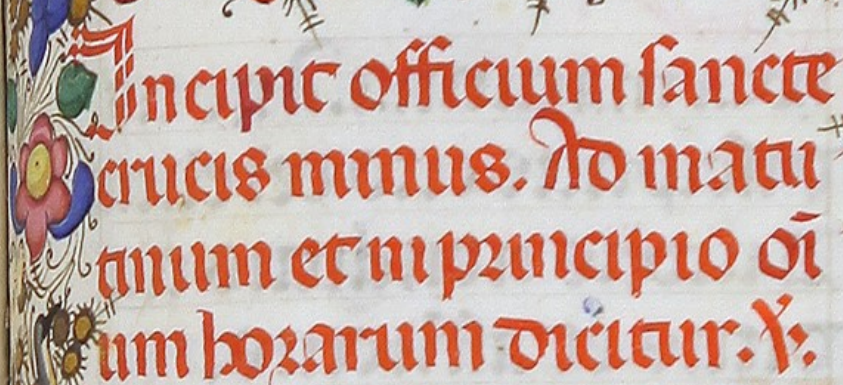 Incipit officium sancte
crucis minus. Ad matu
tinum et in principio oī
um horarum dicitur. ℣.